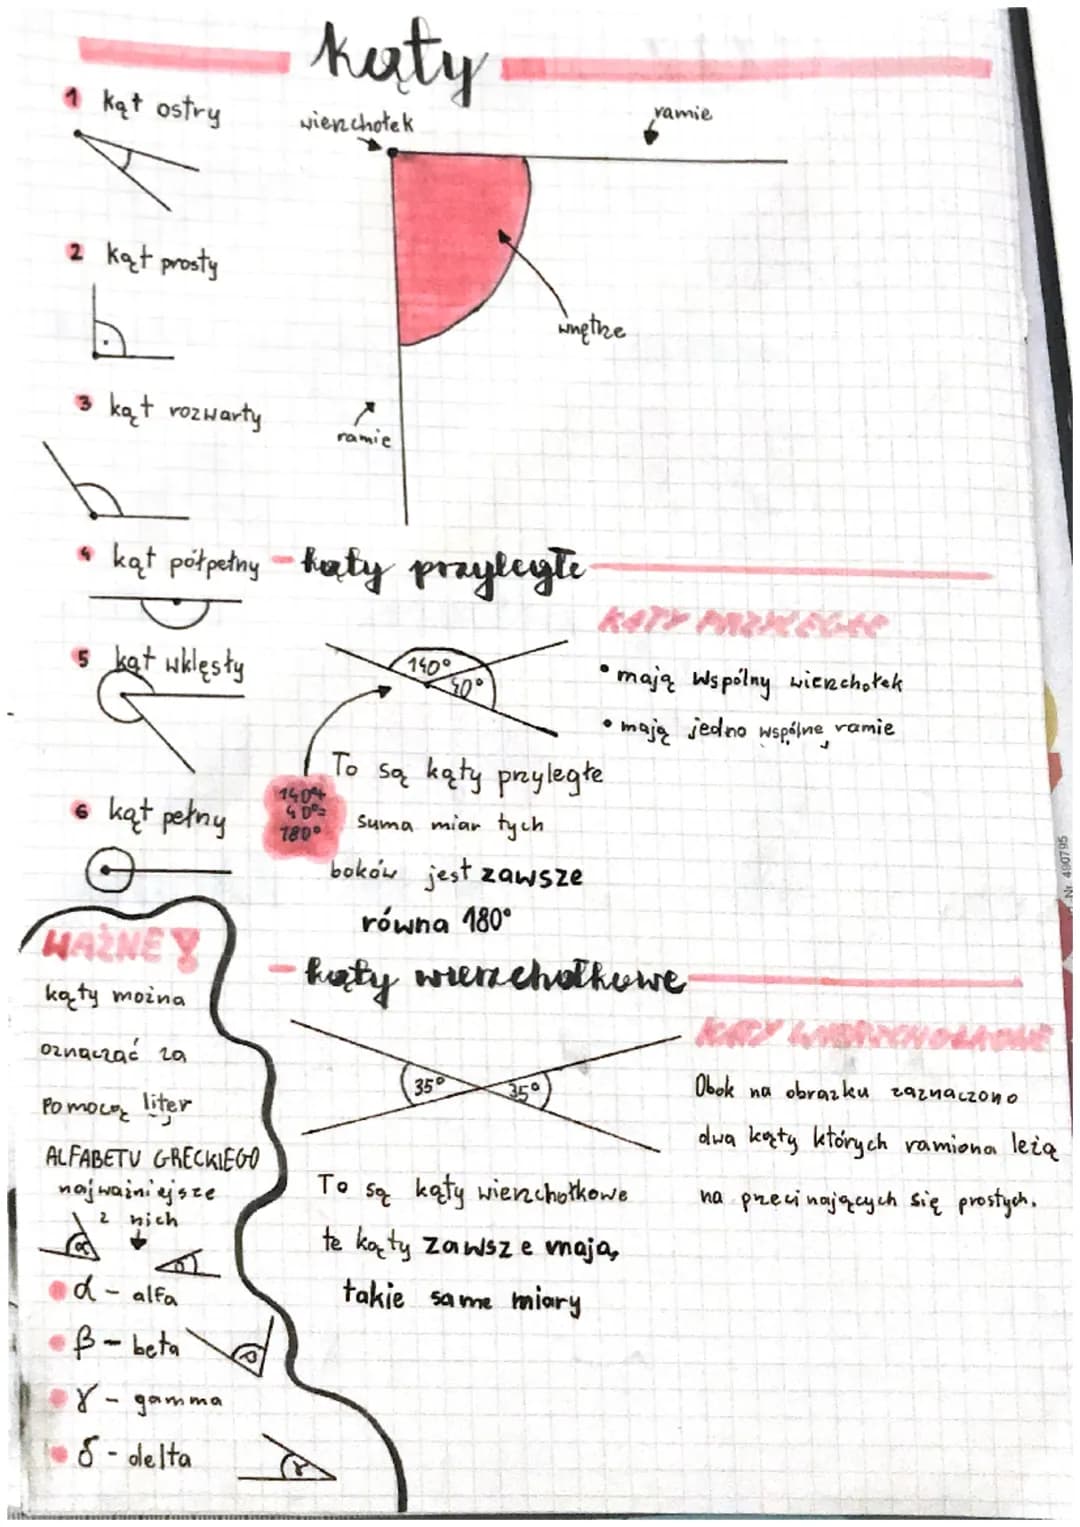 kąty
1 kąt ostry
wierzchołek
ramie
2 kąt prosty
wnętrze
3 kąt rozwarty
ramie
4 kąt półpełny
5 kąt wklęsły
6 kąt pełny
- kąty przyległe
KĄTY PRZYLEGŁE
140°
40°
• mają wspólny wierzchołek
• mają jedno wspólne ramie
To są kąty przyległe
140°+
40°=
180°
suma miar tych
boków jest zawsze
równa 180°
- kąty wierzchołkowe
KĄTY WIERZCHOŁKOWE
35°
35°
Obok na obrazku zaznaczono
dwa kąty których ramiona leżą
na przecinających się prostych.
To są kąty wierzchołkowe
te kąty zawsze mają
takie same miary
WAŻNE!
kąty można
oznaczać za
pomocą liter
ALFABETU GRECKIEGO
najważniejsze
z nich
α
δ
α - alfa
β - beta
β
γ - gamma
δ - delta
γ
Nr. 490795